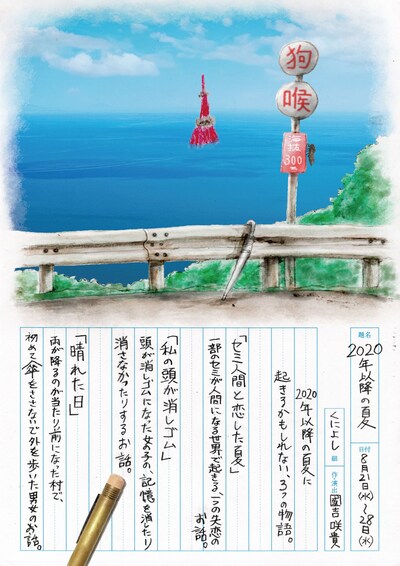 狗
喉
海抜
300
題名
2020年以降の夏
日付
8月21日(水)〜28日(水)
くによし組
作・演出
國吉咲貴
2020年以降の夏に
起きるかもしれない、3つの物語。
「セミ人間と恋した夏」
一部のセミが人間になる世界で起きる、1つの失恋の
お話。
「私の頭が消しゴム」
頭が消しゴムになった女子の、記憶を消したり
消さなかったりするお話。
「晴れた日」
雨が降るのが当たり前になった村で、
初めて傘をささないで外を歩いた男女のお話。